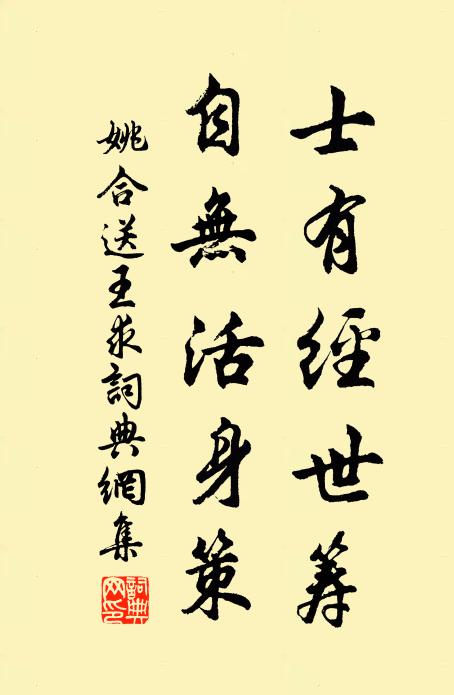 士有經世筹
自無活身策
姚合送王求詞典網集
詞典网印